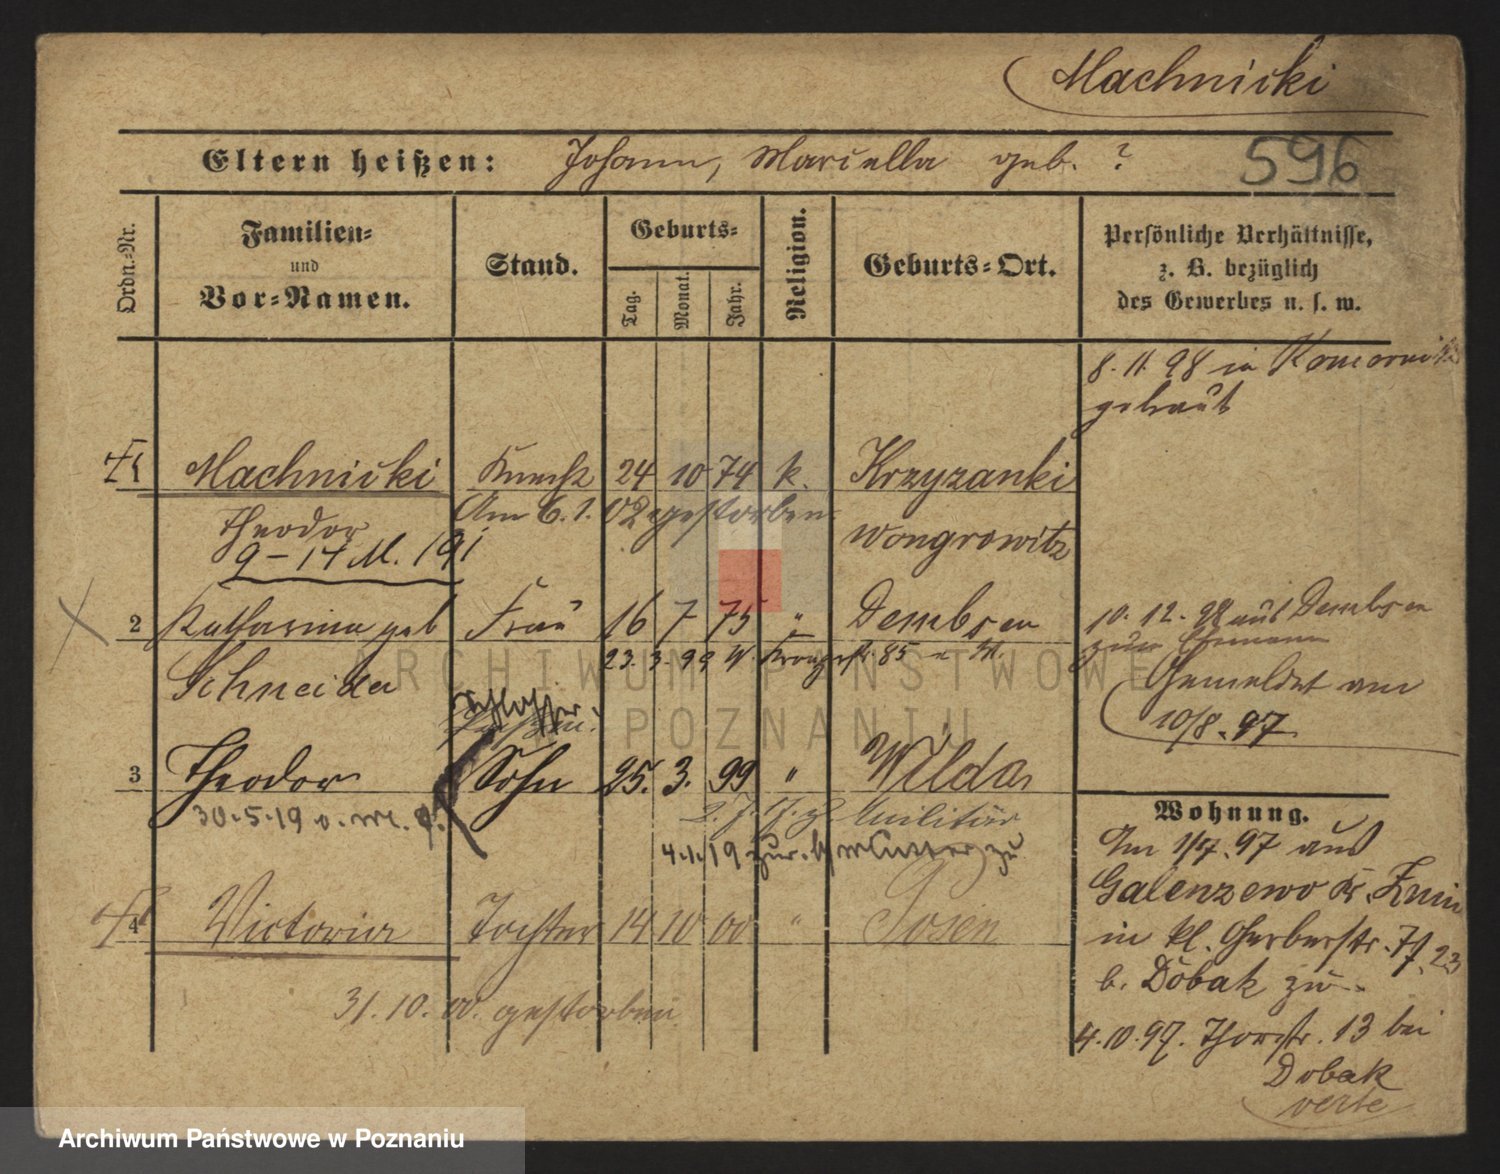 Machnicki
596
Eltern heißen: Johann, Marcella geb. ?
Ordn.-Nr.
Familien-
und
Vor-Namen.
Stand.
Geburts-
Tag.
Monat.
Jahr.
Religion.
Geburts-Ort.
Persönliche Verhältnisse,
z. B. bezüglich
des Gewerbes u. s. w.
8. 11. 98 in
getraut
1 Machnicki Knecht 24 10 74 k. Krzyzanki
Theodor Am 6. 1. 02 gestorben Wongrowitz
9 - 17 M.
2 Katharina geb Frau 16 7 75 " Dembsen
Schneider 23. 3. 99 W. 85
10. 12. 98 aus Dembsen
zum Ehemann
Gemeldet am
10/8. 97.
Schlosser
3 Theodor Sohn 25. 3. 99 " Wilda
30.5.19 Militär
4.1.19 zur Mutter zu
4 Victoria Tochter 14 10 00 " Posen
31. 10. 00. gestorben
Wohnung.
Am 1/7. 97 aus
Galenzewo Kr. Znin
in kl. Gerberstr.
b. Dobak zu
4.10.97. Thorstr. 13 bei
Dobak
verte
ARCHIWUM PAŃSTWOWE
W POZNANIU
Archiwum Państwowe w Poznaniu